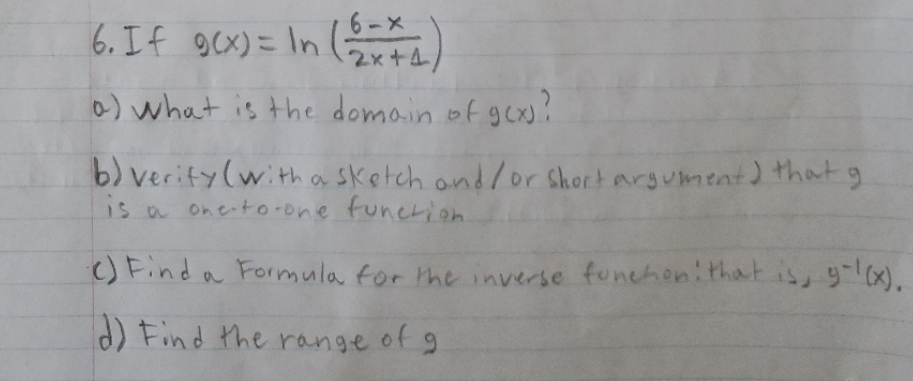 6. If g(x) = ln (6-x / 2x+1)
a) What is the domain of g(x)?
b) Verify (with a sketch and/or short argument) that g
is a one-to-one function
c) Find a Formula for the inverse function: that is, g⁻¹(x).
d) Find the range of g